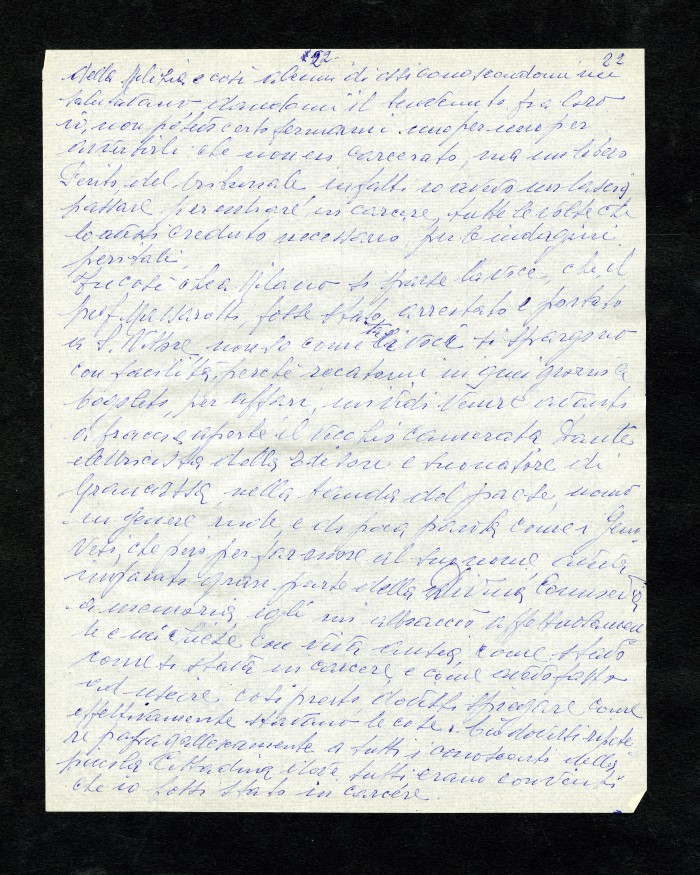 22 22
della Milizia e così alcuni di essi conoscendomi mi
salutavano dandomi il benvenuto fra loro
io, non potevo certo fermarmi uno per uno per
avvertirli che non ero carcerato, ma un libero
Perito del tribunale infatti io avevo un lascia
passare per entrare in carcere, tutte le volte che
lo avessi creduto necessario per le indagini
peritali.
Fu così che a Milano si sparse la voce, che il
prof. Massarotti, fosse stato arrestato e portato
a S. Vittore non so come tali voci si spargono
con facilità, perché recatomi in quei giorni a
per affari, mi vidi venire avanti
a braccia aperte il vecchio camerata Dante
elettricista della Editore e suonatore di
Grancassa, nella banda del paese, uomo
in genere rude, e di poca parola come i Geno
vesi, che però per far onore al suo nome, aveva
imparato gran parte della Divina Commedia
a memoria, egli mi abbracciò affettuosamen
te e mi chiese con vista ansia come stavo
come si stava in carcere, e come avevo fatto
ad uscire così presto dovetti spiegare come
effettivamente stavano le cose. Ciò dovetti ripete
re pappagallescamente a tutti i conoscenti della
piccola Cittadina dove tutti erano convinti
che io fossi stato in carcere.